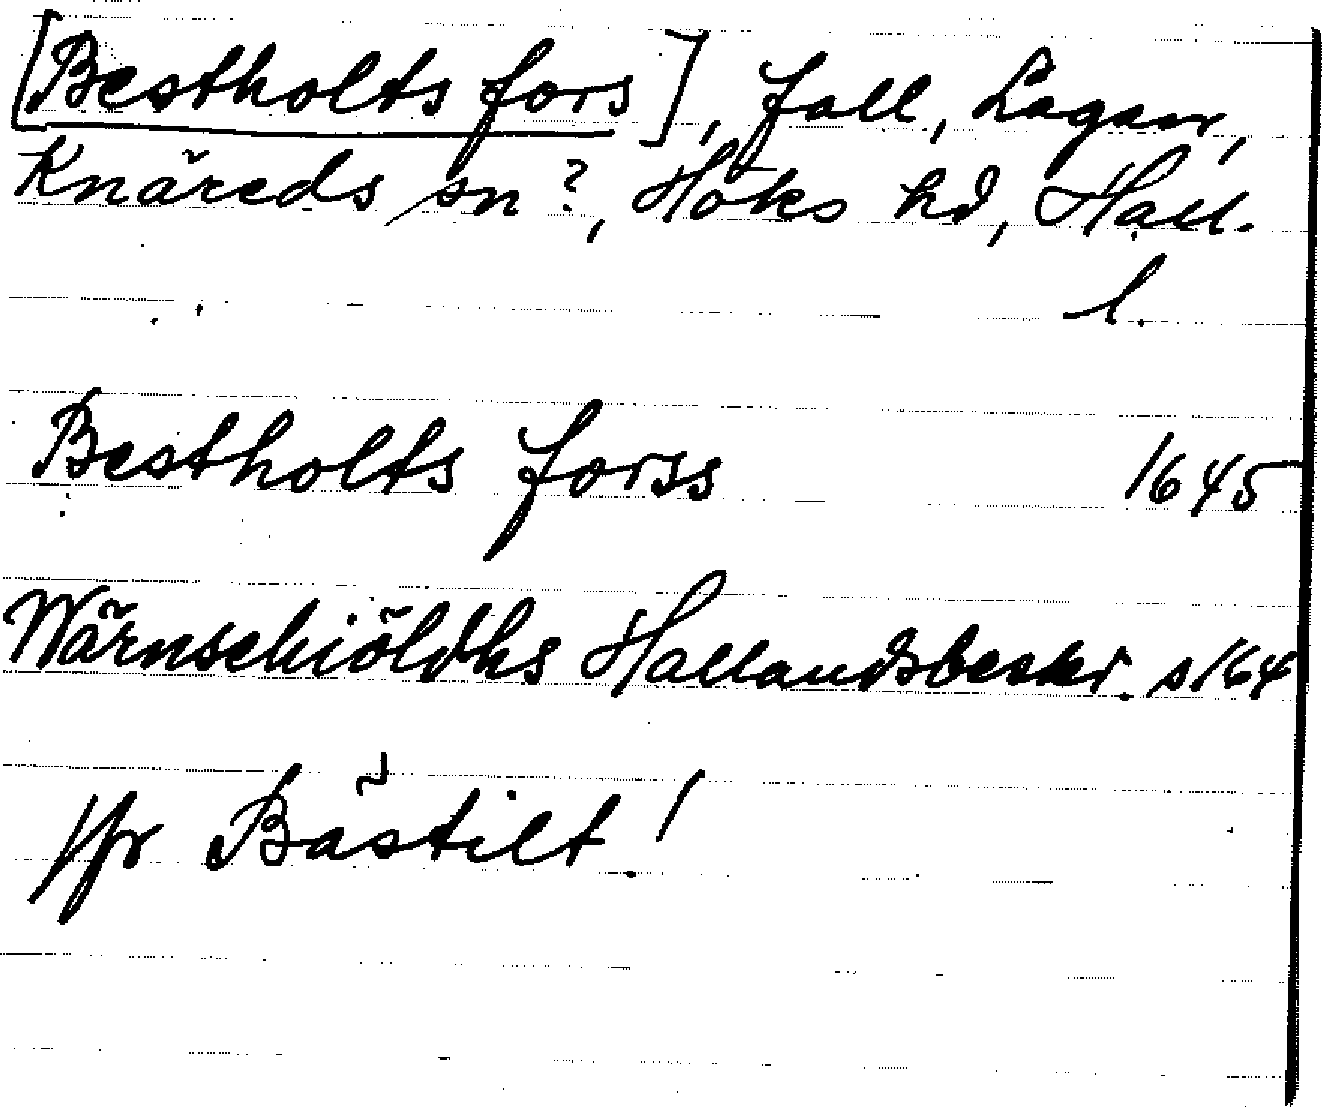 [Bestholts fors], fall, Lagan,
Knäreds sn?, Höks hd, Hall.
l.
Bestholts forss 1645
Wärnschiöldhs Hallandsbeskr. s 164
Jfr Båstilt!